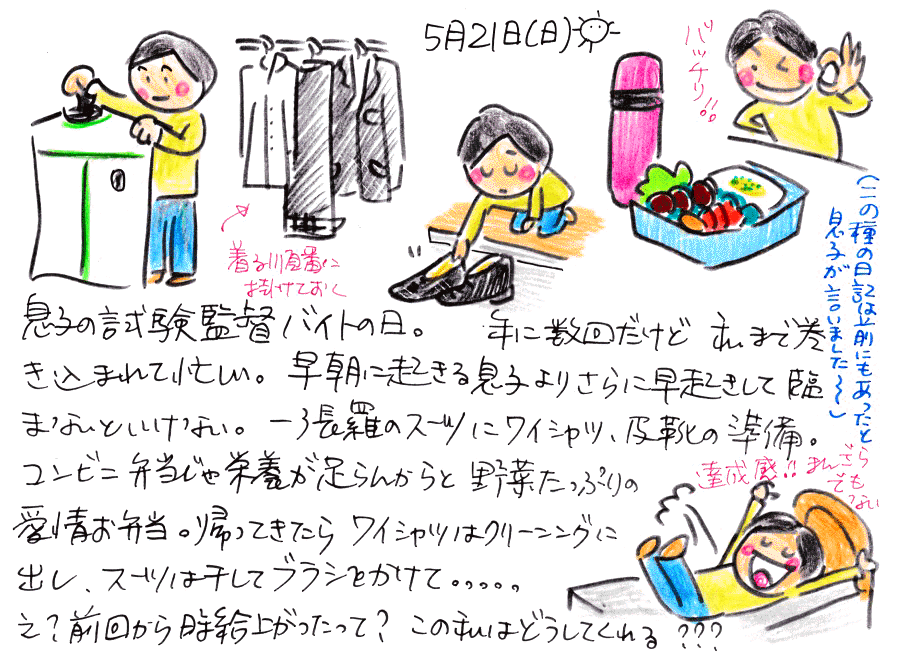 5月21日(日)
バッチリ!!
着る順番に
掛けておく
(この種の日記は以前にもあったと
息子が言いました〜)
息子の試験監督バイトの日。 年に数回だけど 私まで巻
き込まれて忙しい。早朝に起きる息子よりさらに早起きして臨
まないといけない。一張羅のスーツにワイシャツ、皮靴の準備。
コンビニ弁当じゃ栄養が足らんからと野菜たっぷりの
愛情お弁当。帰ってきたら ワイシャツはクリーニングに
出し、スーツは干してブラシをかけて。。。。。
え?前回から時給上がったって? この私はどうしてくれる???
達成感!!まんざら
でも
ない